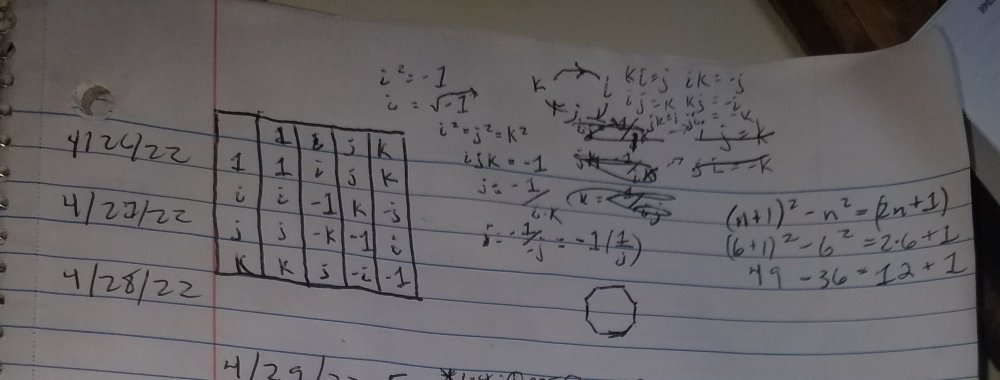 4/26/22
4/27/22
4/28/22
1 i j k
1 1 i j k
i i -1 k -j
j j -k -1 i
k k j -i -1
i² = -1
i = √-1
i² = j² = k²
ijk = -1
j = -1/i·k
j = -1/-j = -1(1/j)
k i ki=j ik=-j
j ij=k kj=-i
jk=i ji=-k
ij=k
ji=-k
(n+1)² - n² = (2n+1)
(6+1)² - 6² = 2·6+1
49 - 36 = 12 + 1
4/29/22